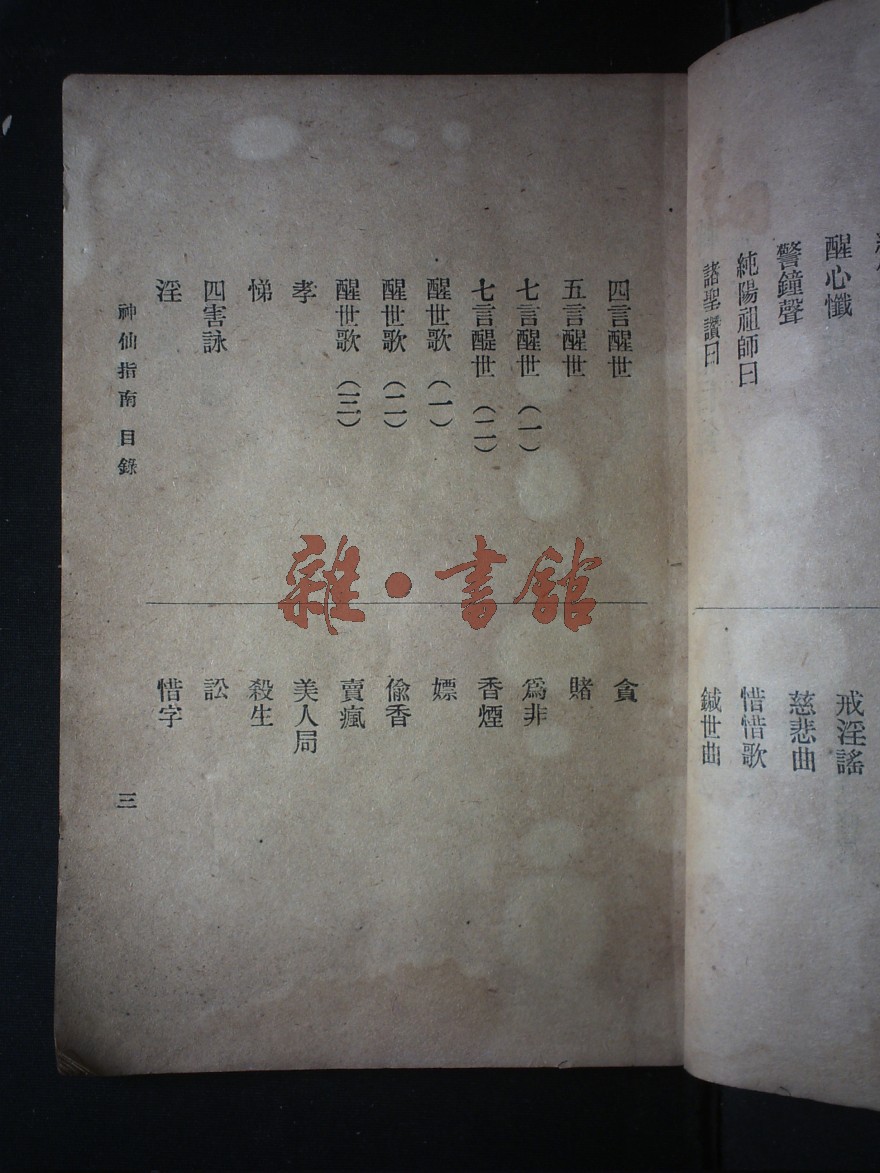 醒心懺
警鐘聲
純陽祖師曰
諸聖讚曰
戒淫謠
慈悲曲
惜惜歌
鍼世曲
四言醒世
五言醒世
七言醒世（一）
七言醒世（二）
醒世歌（一）
醒世歌（二）
醒世歌（三）
孝
悌
四害詠
淫
貪
賭
為非
香煙
嫖
偷香
賣瘋
美人局
殺生
訟
惜字
神仙指南 目錄
三
雜·書館